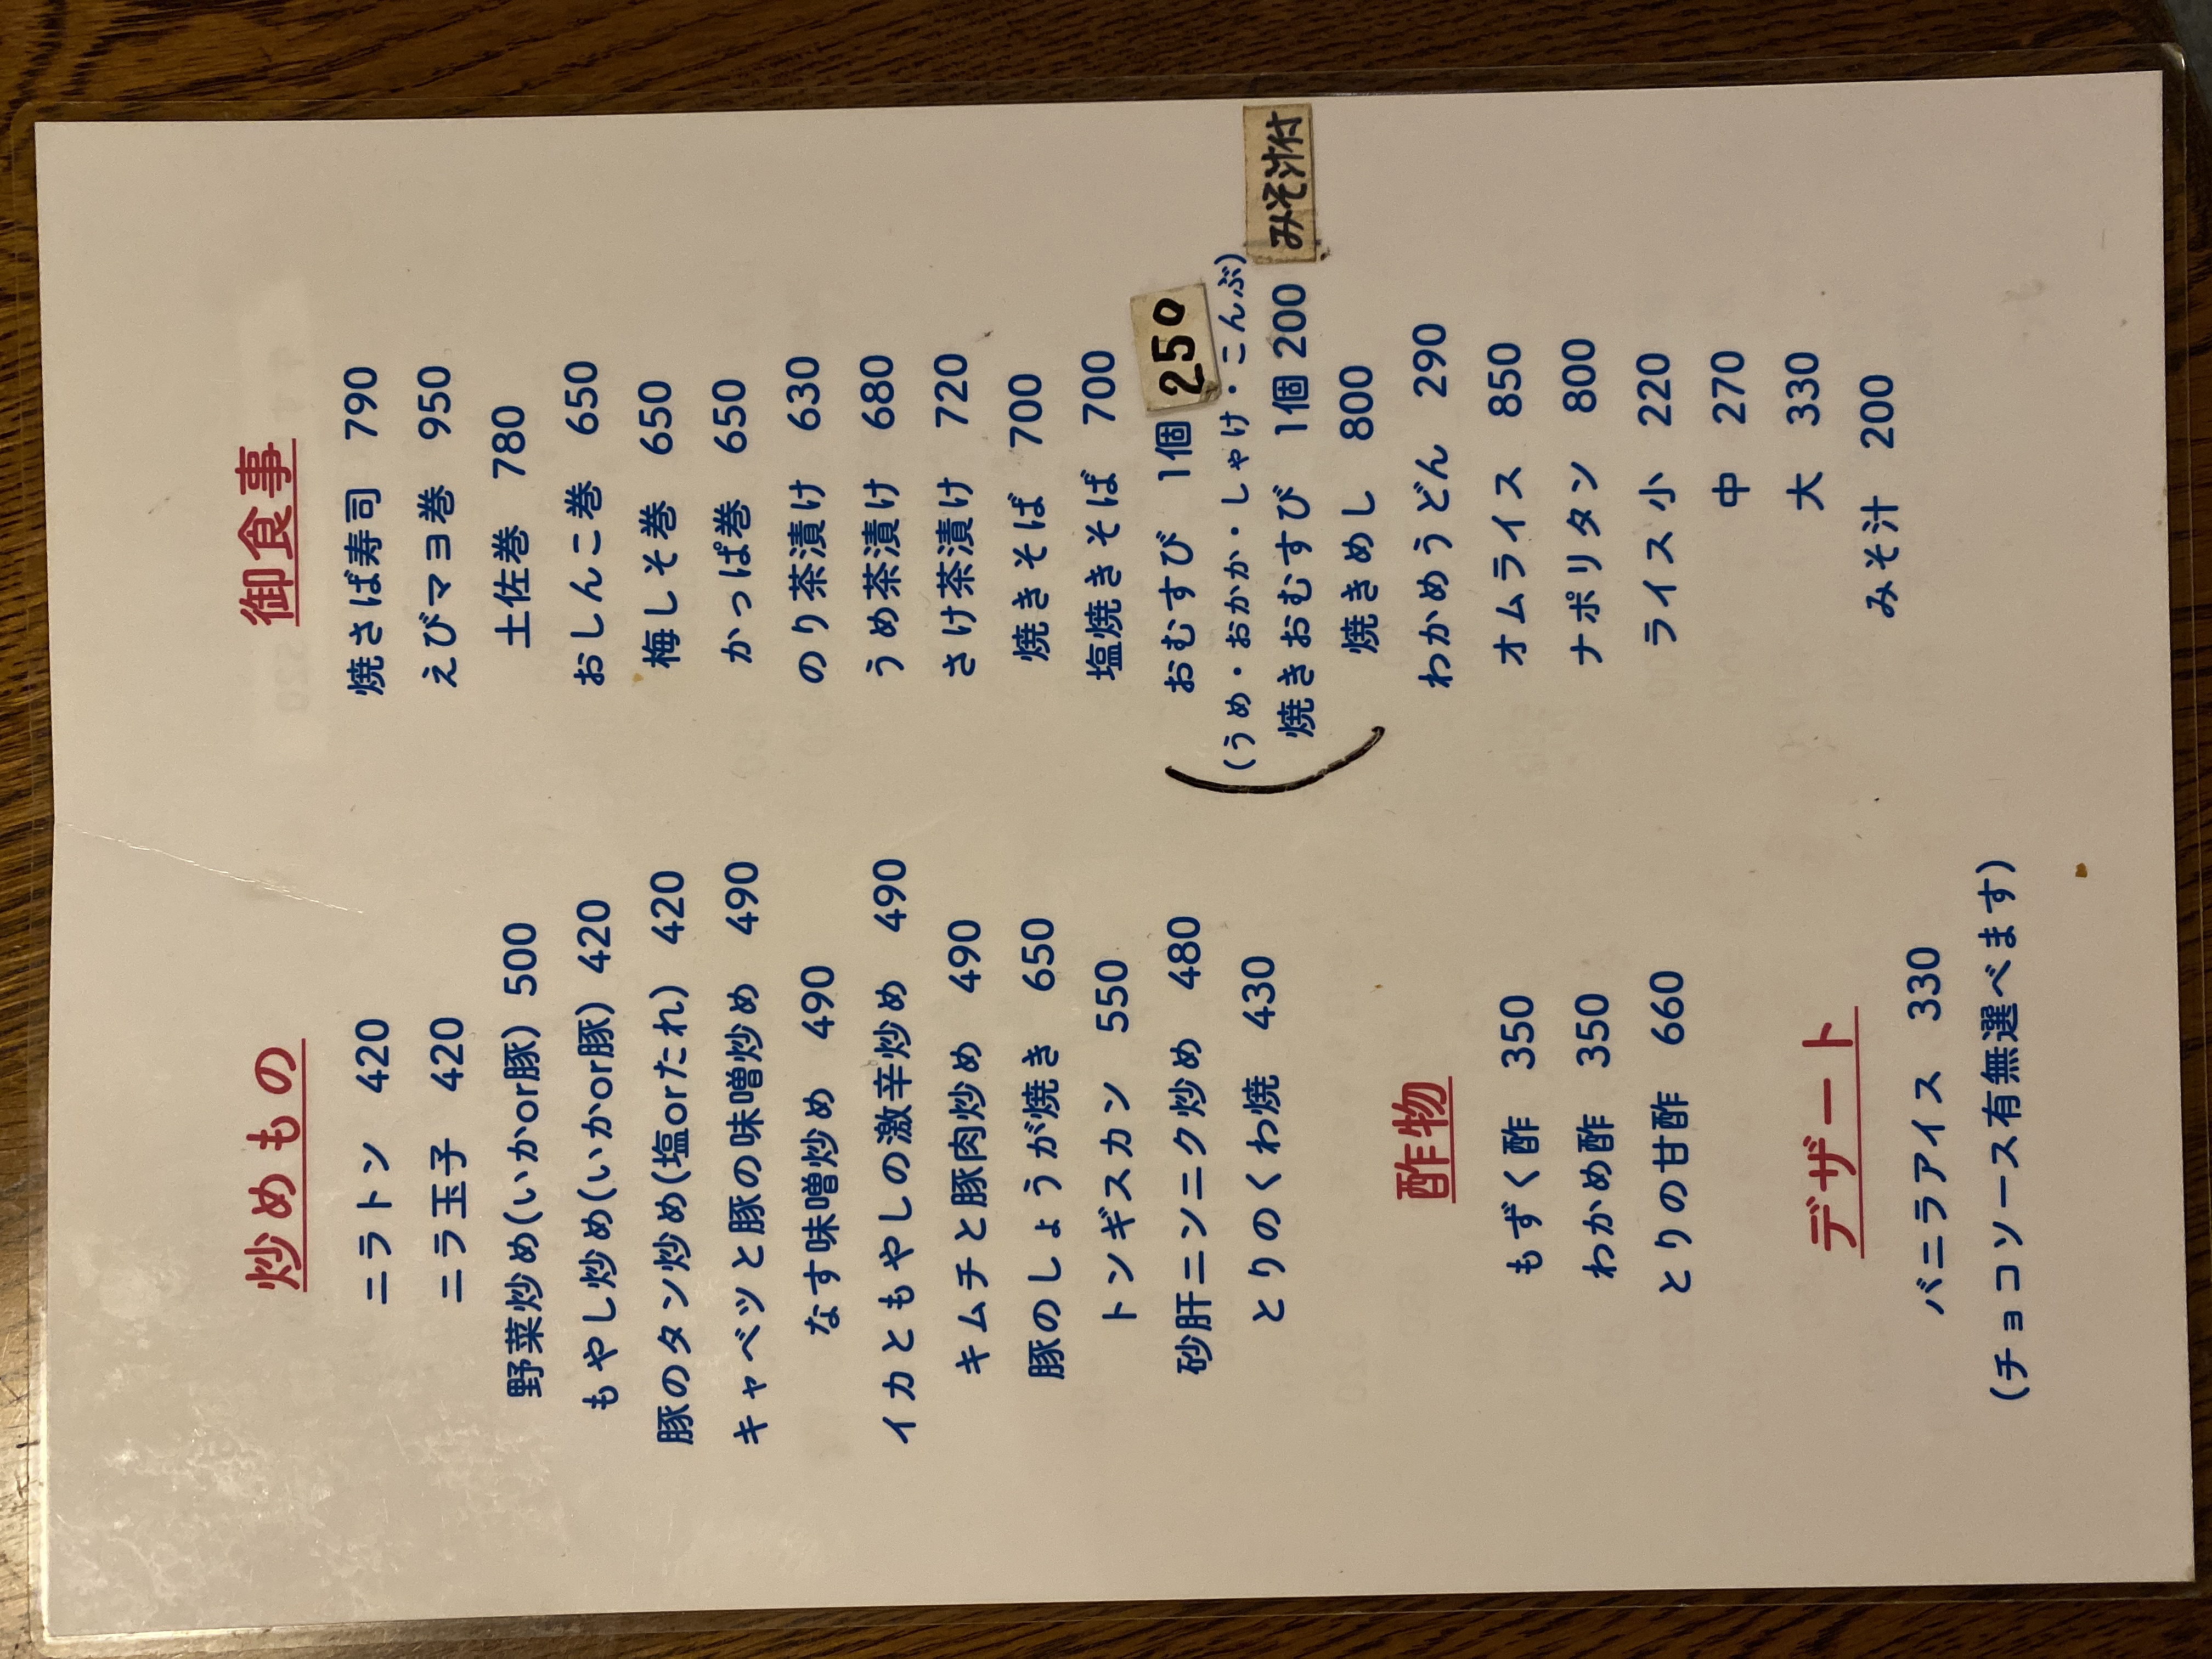 炒めもの
ニラトン 420
ニラ玉子 420
野菜炒め(いかor豚) 500
もやし炒め(いかor豚) 420
豚のタン炒め(塩orたれ) 420
キャベツと豚の味噌炒め 490
なす味噌炒め 490
イカともやしの激辛炒め 490
キムチと豚肉炒め 490
豚のしょうが焼き 650
トンギスカン 550
砂肝ニンニク炒め 480
とりのくわ焼 430
酢物
もずく酢 350
わかめ酢 350
とりの甘酢 660
デザート
バニラアイス 330
(チョコソース有無選べます)
御食事
焼さば寿司 790
えびマヨ巻 950
土佐巻 780
おしんこ巻 650
梅しそ巻 650
かっぱ巻 650
のり茶漬け 630
うめ茶漬け 680
さけ茶漬け 720
焼きそば 700
塩焼きそば 700
おむすび 1個 250
(うめ・おかか・しゃけ・こんぶ)
焼きおむすび 1個 200 みそ汁付
焼きめし 800
わかめうどん 290
オムライス 850
ナポリタン 800
ライス 小 220
中 270
大 330
みそ汁 200